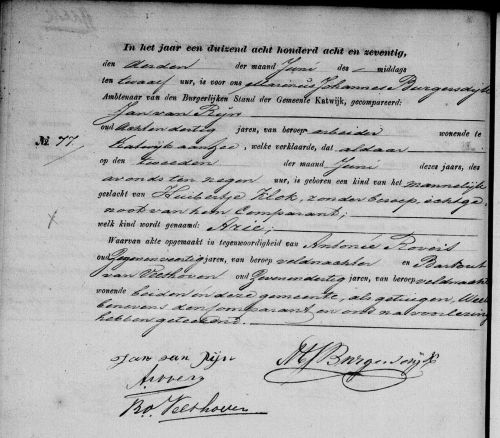 In het jaar een duizend acht honderd acht en zeventig,
den derden der maand Juni des middags
ten twaalf uur, is voor ons Marinus Johannes Burgersdijk
Ambtenaar van den Burgerlijken Stand der Gemeente Katwijk, gecompareerd:
Jan van Rijn
oud achtendertig jaren, van beroep arbeider wonende te
No. 77. Katwijk aan zee, welke verklaarde, dat aldaar
op den tweeden der maand Juni dezes jaars, des
avonds ten negen uur, is geboren een kind van het mannelijk
geslacht van Huibertje Klok, zonder beroep, echtge-
noot van hem Comparant;
welk kind wordt genaamd: Arie;
Waarvan akte opgemaakt in tegenwoordigheid van Antonie
oud jaren, van beroep veldwachter en
van Velthoven oud jaren, van beroep veldwachter
wonende beiden in deze gemeente, als getuigen, die
benevens den comparant en ons na voorlezing
hebben geteekend.
Jan van Rijn
MJ Burgersdijk
Velthoven